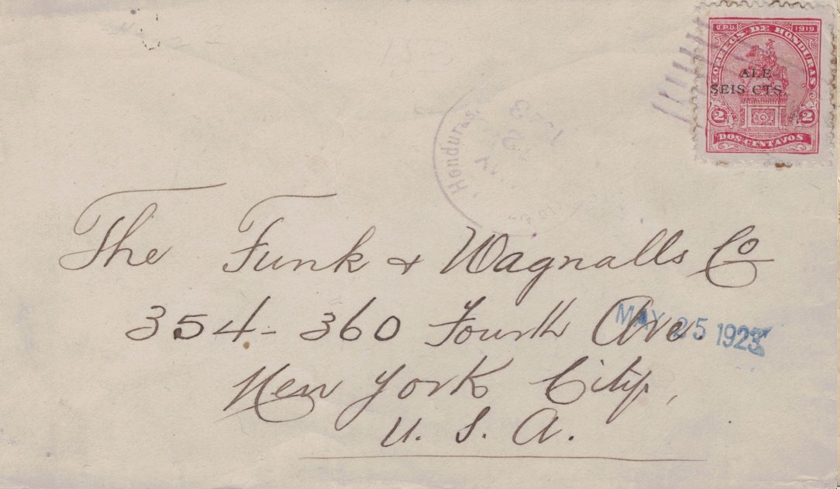 U.P.U. 1919
CORREOS DE HONDURAS
ALE
SEIS CTS.
2 2
DOS CENTAVOS
Honduras
The Funk & Wagnalls Co
354-360 Fourth Ave.
MAY 25 1923
New York City,
U. S. A.